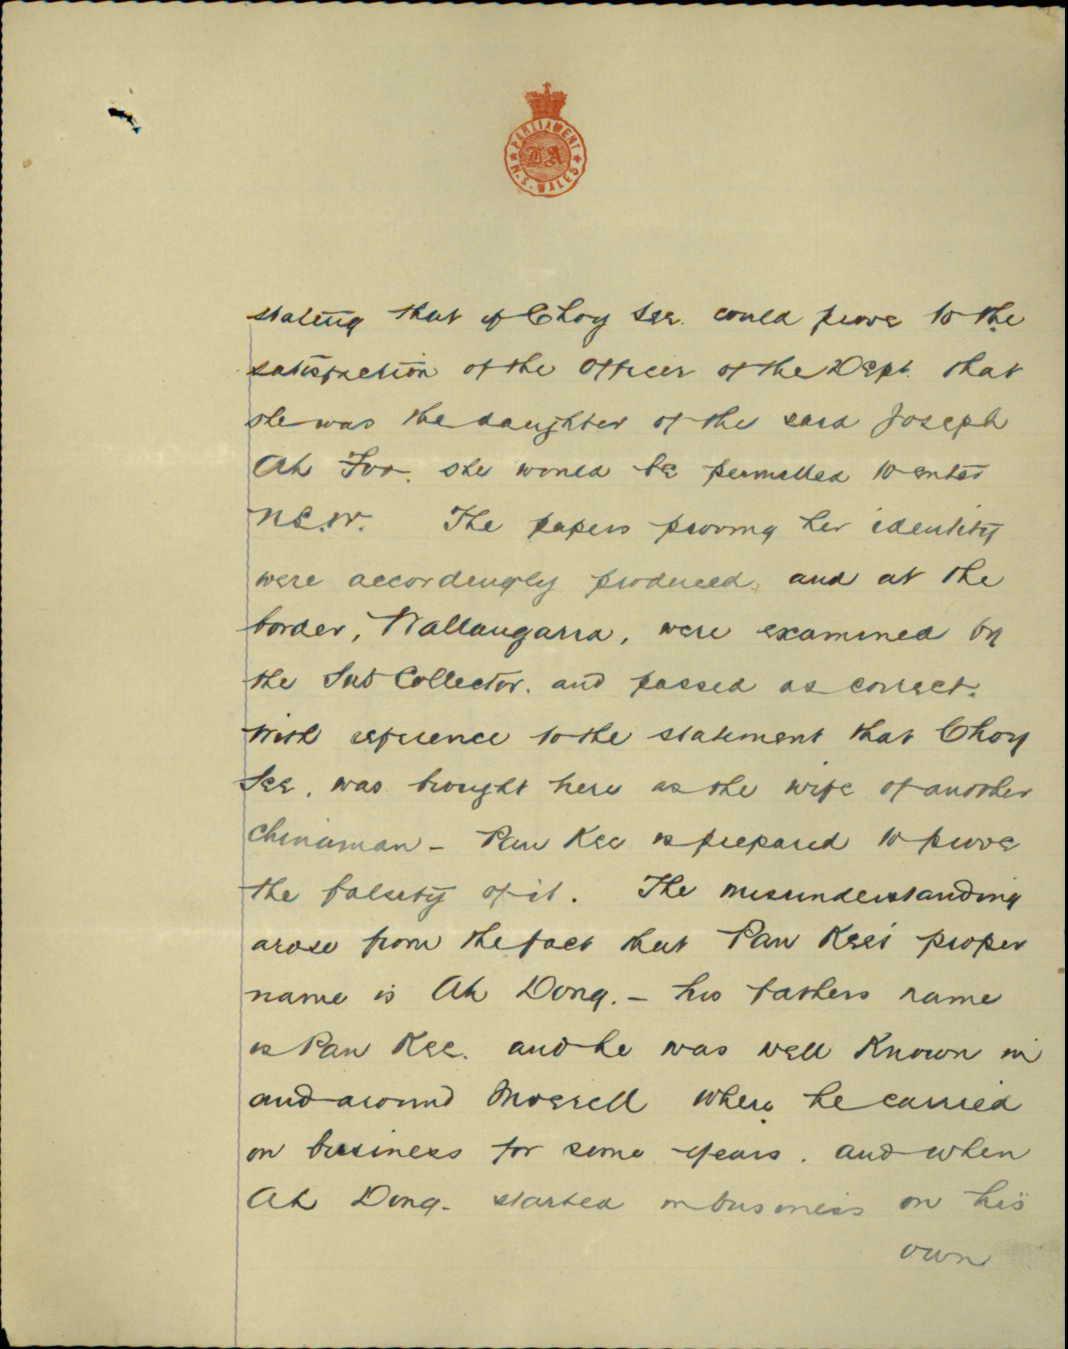 PARLIAMENT
L A
N.S. WALES
stating that if Choy See. could prove to the
satisfaction of the Officer of the Dept. that
she was the daughter of the said Joseph
Ah Foo. she would be permitted to enter
N.S.W. The papers proving her identity
were accordingly produced, and at the
border, Wallangarra, were examined by
the Sub Collector. and passed as correct.
With reference to the statement that Choy
See. was brought here as the wife of another
Chinaman - Pan Kee is prepared to prove
the falsity of it. The misunderstanding
arose from the fact that Pan Kee's proper
name is Ah Dong. - his fathers name
is Pan Kee. and he was well known in
and around where he carried
on business for some years. and when
Ah Dong. started in business on his
own